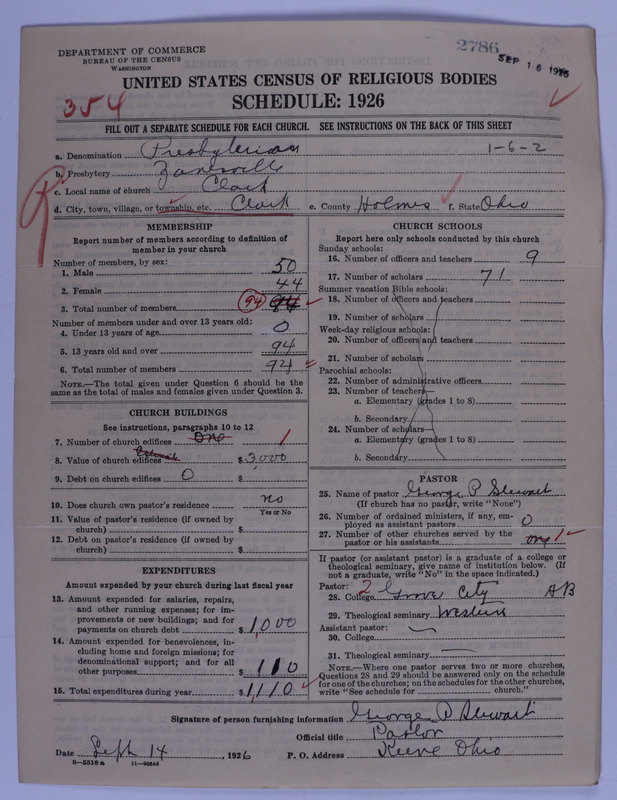 DEPARTMENT OF COMMERCE
BUREAU OF THE CENSUS
WASHINGTON
2786
SEP 16 1926
UNITED STATES CENSUS OF RELIGIOUS BODIES
354
SCHEDULE: 1926
FILL OUT A SEPARATE SCHEDULE FOR EACH CHURCH. SEE INSTRUCTIONS ON THE BACK OF THIS SHEET
a. Denomination Presbyterian 1-6-2
b. Presbytery Zanesville
c. Local name of church Clark
d. City, town, village, or township, etc. Clark e. County Holmes f. State Ohio
MEMBERSHIP
Report number of members according to definition of member in your church
Number of members, by sex:
1. Male 50
2. Female 44
3. Total number of members 94
Number of members under and over 13 years old:
4. Under 13 years of age 0
5. 13 years old and over 94
6. Total number of members 94
NOTE.—The total given under Question 6 should be the same as the total of males and females given under Question 3.
CHURCH BUILDINGS
See instructions, paragraphs 10 to 12
7. Number of church edifices One 1
8. Value of church edifices Estimate $ 3,000
9. Debt on church edifices 0 $
10. Does church own pastor's residence no
Yes or No
11. Value of pastor's residence (if owned by church) $
12. Debt on pastor's residence (if owned by church) $
EXPENDITURES
Amount expended by your church during last fiscal year
13. Amount expended for salaries, repairs, and other running expenses; for improvements or new buildings; and for payments on church debt $ 1,000
14. Amount expended for benevolences, including home and foreign missions; for denominational support; and for all other purposes $ 110
15. Total expenditures during year $ 1,110
CHURCH SCHOOLS
Report here only schools conducted by this church
Sunday schools:
16. Number of officers and teachers 9
17. Number of scholars 71
Summer vacation Bible schools:
18. Number of officers and teachers
19. Number of scholars
Week-day religious schools:
20. Number of officers and teachers
21. Number of scholars
Parochial schools:
22. Number of administrative officers
23. Number of teachers—
a. Elementary (grades 1 to 8)
b. Secondary
24. Number of scholars—
a. Elementary (grades 1 to 8)
b. Secondary
PASTOR
25. Name of pastor George P Stewart
(If church has no pastor, write "None")
26. Number of ordained ministers, if any, employed as assistant pastors 0
27. Number of other churches served by the pastor or his assistants one 1
If pastor (or assistant pastor) is a graduate of a college or theological seminary, give name of institution below. (If not a graduate, write "No" in the space indicated.)
Pastor: 2
28. College Grove City AB
29. Theological seminary Western
Assistant pastor:
30. College
31. Theological seminary
NOTE.—Where one pastor serves two or more churches, Questions 28 and 29 should be answered only on the schedule for one of the churches; on the schedules for the other churches, write "See schedule for church."
Signature of person furnishing information George P Stewart
Official title Pastor
Date Sept 14, 1926 P. O. Address Keene Ohio